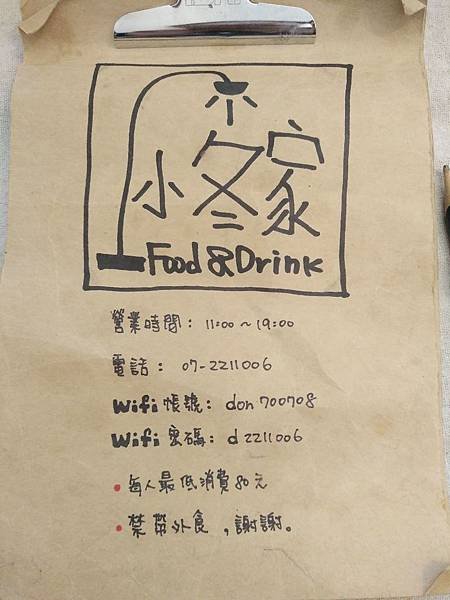 小冬家
Food & Drink
營業時間：11:00～19:00
電話：07-2211006
Wifi 帳號：don700708
Wifi 密碼：d2211006
• 每人最低消費80元
• 禁帶外食，謝謝。